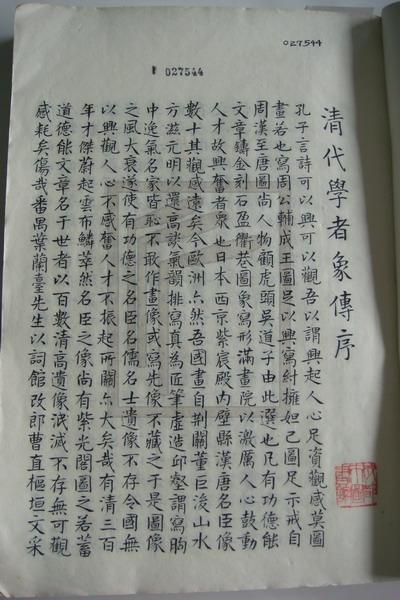 027544
027544
清代學者象傳序
孔子言詩可以興可以觀吾以謂興起人心足資觀感莫圖
畫若也寫周公輔成王圖足以興寫紂擁妲己圖足示戒自
周漢至唐圖尚人物顧虎頭吳道子由此選也凡有功德能
文章鑄金刻石盈衢巷圖象寫形滿畫院以激厲人心鼓動
人才故興奮者衆也日本西京紫宸殿内壁縣漢唐名臣像
數十其觀感遠矣今歐洲亦然吾國畫自荆關董巨浚山水
方滋元明以還高談氣韻排寫真為匠筆虛造邱壑謂寫胸
中逸氣名家皆恥不敢作畫像或寫先像不藏之于是圖像
之風大衰遂使有功德之名臣名儒名士遺像不存令國無
以興觀人心不感奮人才不振起所關亦大矣哉有清三百
年才傑蔚起雲布鱗萃然名臣之像尚有紫光閣圖之若蓄
道德能文章名于世者以百數清高遺像泯滅不存無可觀
感耗矣傷哉番禺葉蘭臺先生以詞館改郎曹直樞垣文采